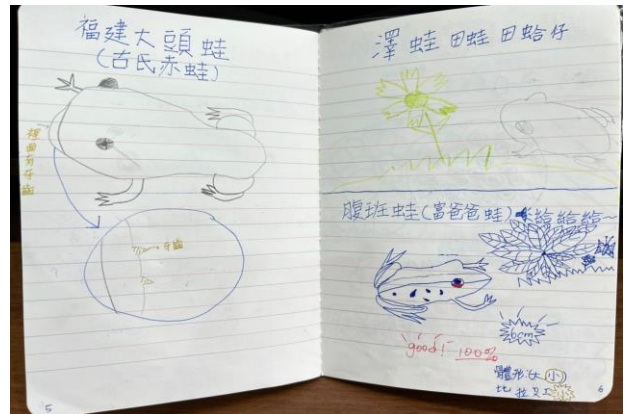 福建大頭蛙
(古氏赤蛙)
裡面有牙齒
牙齒
5
澤蛙 田蛙 田蛤仔
腹斑蛙(富爸爸蛙) 給給給~
6cm
good! 100%
體形:大(小)
比拉又工小
6